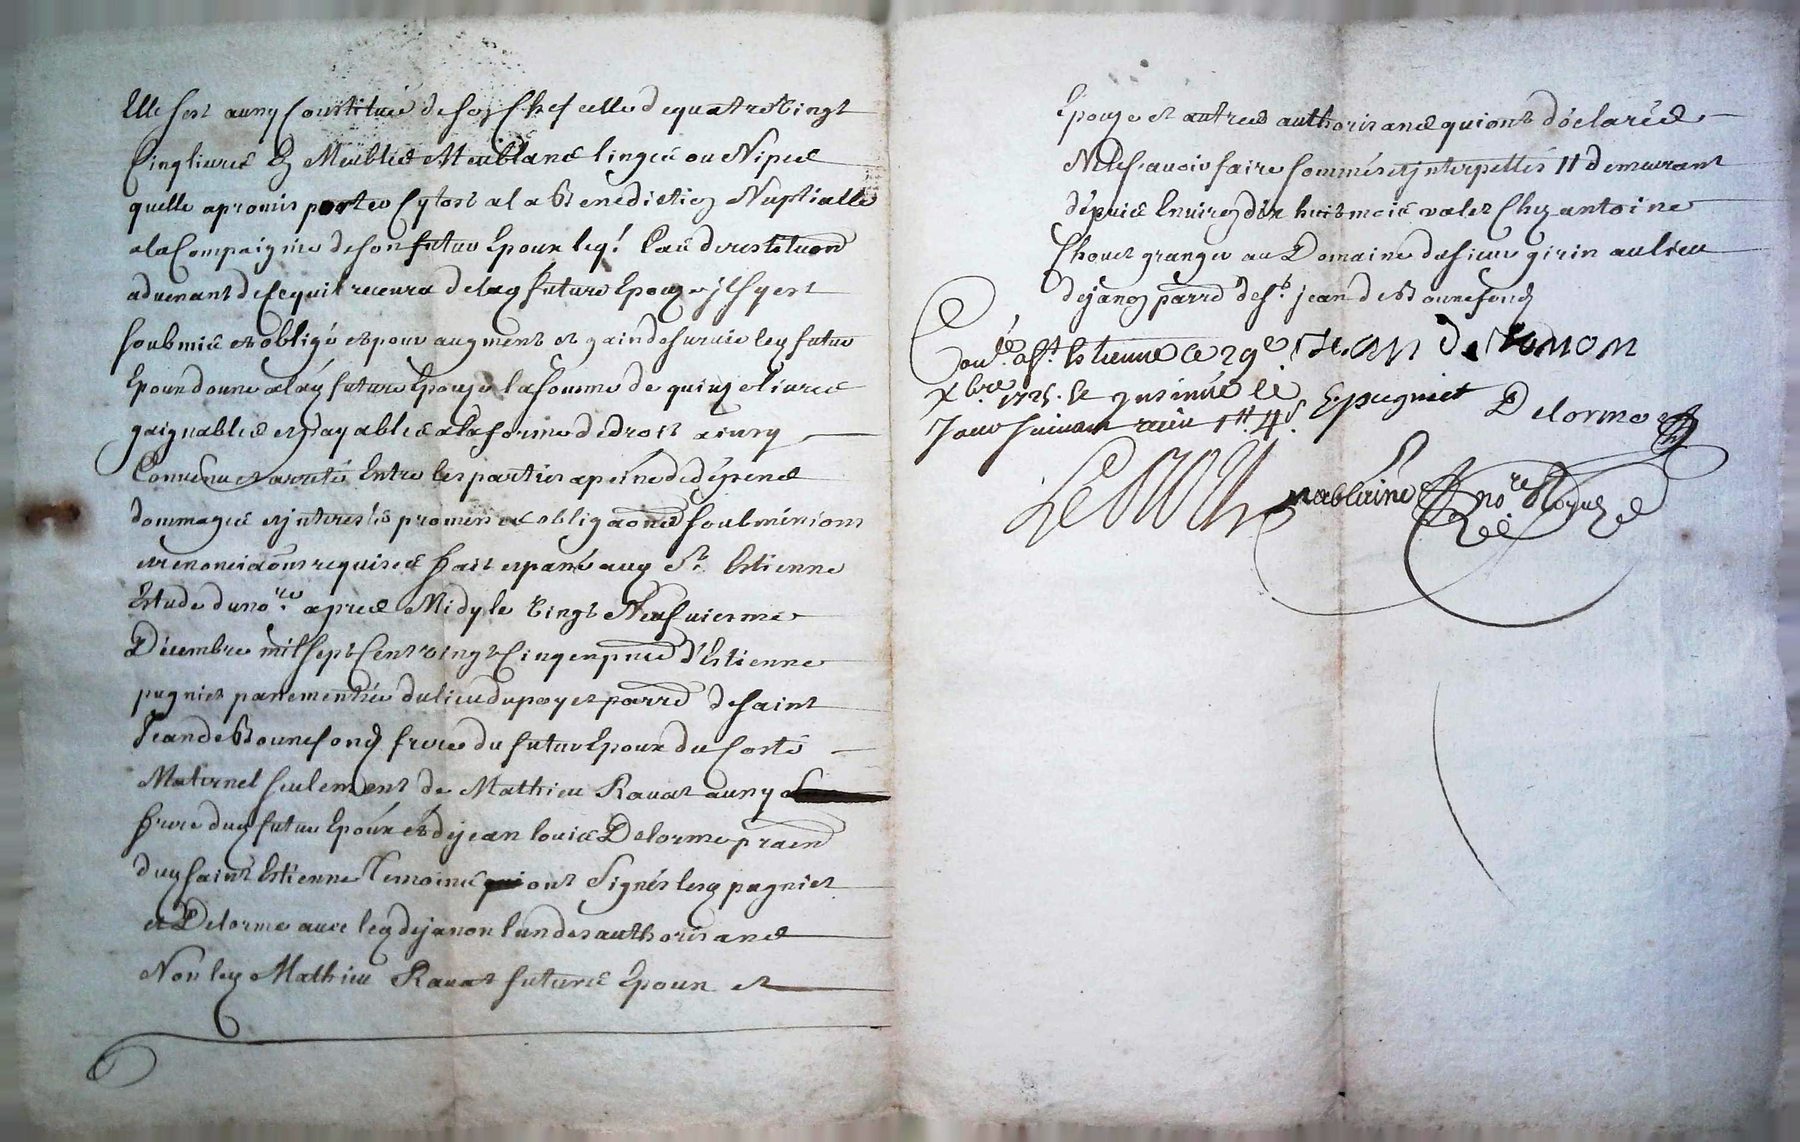 Elle sest aussy Constituée de son Chef celle de quatre vingt
Cinq livres En Meubles Meublans linges ou Nipes
quelle a promis porter Cytost a la Benediction Nuptialle
a la Compaignie de son futur Epoux leql. Cas de restituon
advenant de ce quil recevra de lad future Epouze jl sy est
soubmis et obligé et pour augment et gain de survie led futur
Epoux donne a lad future Epouze la somme de quinze livres
gaignables et payables a la forme de droit ainsy
Convenu et arreté Entre les parties a peine de dépens
dommages et jnterests promesses obligaons soubmissions
et renonciaons requises fait et passé aud St. Estienne
Estude du nore. apres Midy le vingt Neufviesme
Décembre mil sept Cent vingt Cinq en pnce d'Estienne
pugniet passementier du lieu du pay et parre de saint
Jean de Bonnefond frere du futur Epoux du Costé
Maternel seulement de Mathieu Ravat aussy
frere dud futur Epoux et de jean louis Delorme praen
dud saint Estienne Temoins qui ont Signés lesd pugniet
et Delorme avec led dejanon lun des authorisans
Non led Mathieu Ravat futurs Epoux et
Epouze et autres authorisans qui ont déclarés
Ne le scavoir faire sommés et jnterpellés 11 demeurant
depuis Environ dix huit mois valet Chez antoine
Chovet granger au Domaine du sieur girin au lieu
dejanon parre de St. jean de Bonnefond
Conlé. a St. Estienne ce 29e. Jean De Janon
Xbre 1725. & jnsinué le
Jour suivant reçu 1tt 4s. E. pugniet Delorme
nore. Royal